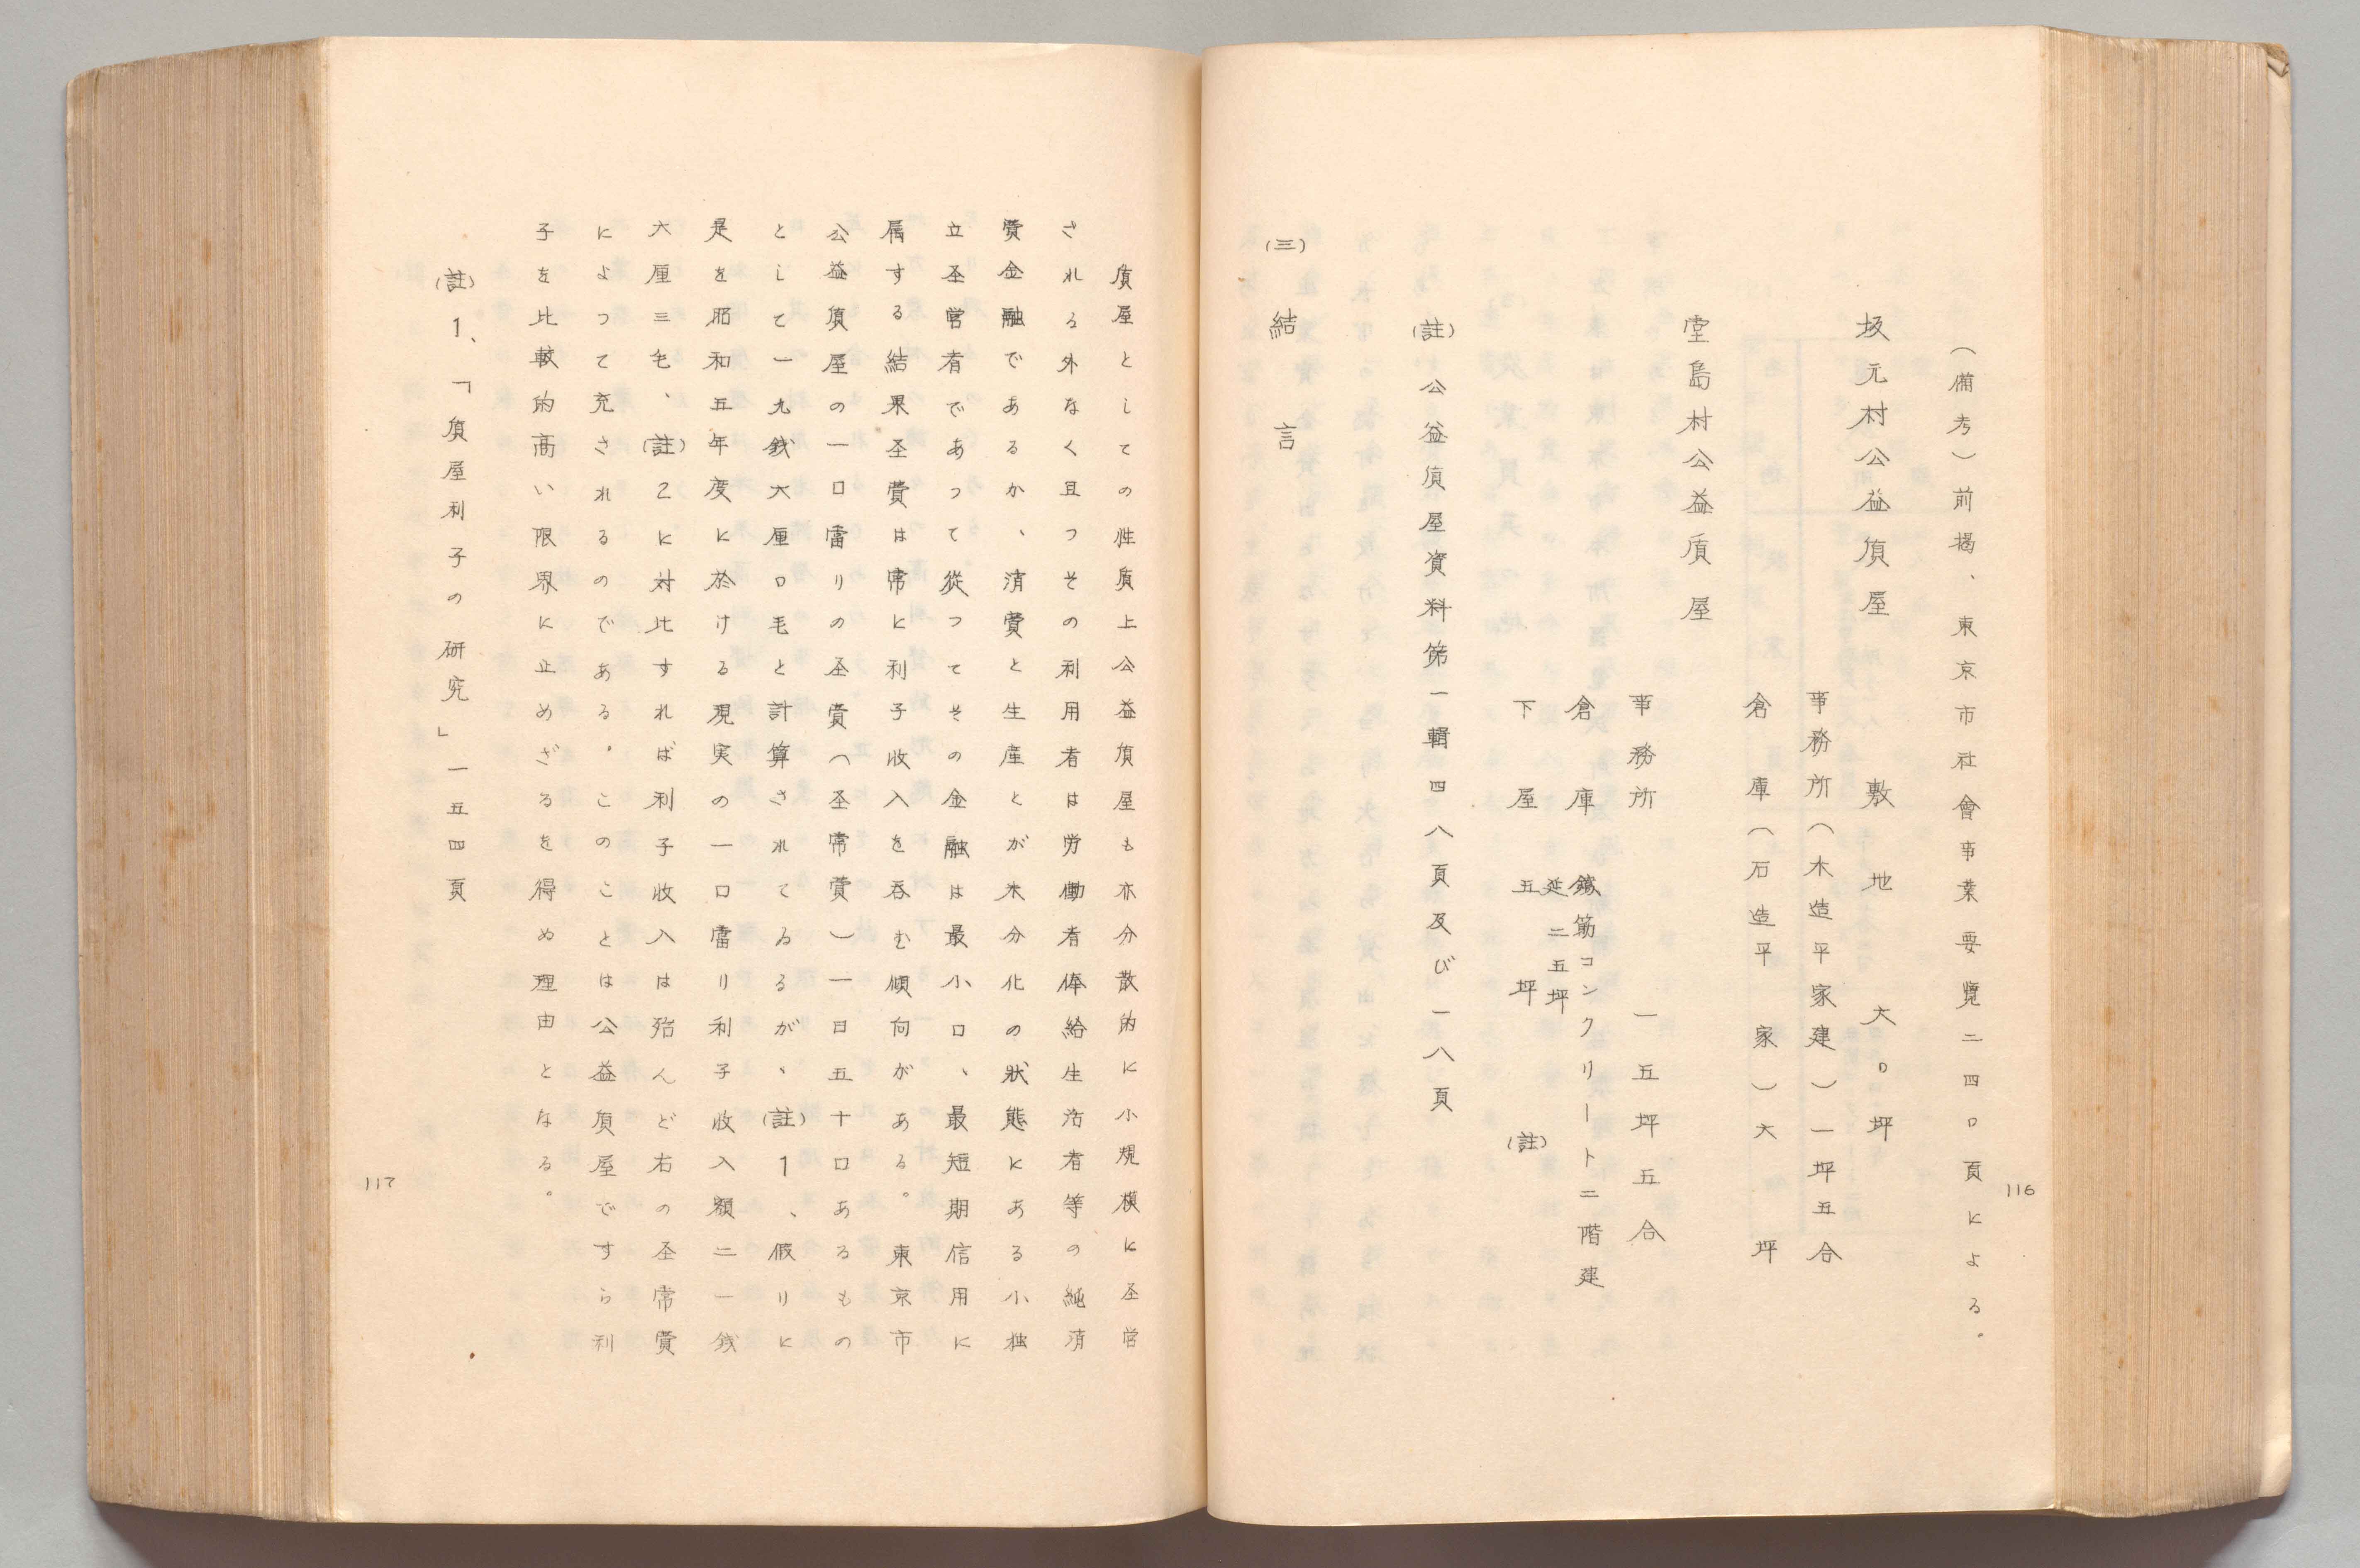 116
（備考）前揭、東京市社會事業要覧二四〇頁による。
坂元村公益質屋　敷地　六〇坪
事務所（木造平家建）一坪五合
倉庫（石造平家）六坪
堂島村公益質屋
事務所　一五坪五合
倉庫　鐵筋コンクリート二階建
延二五坪
下屋　五坪　（註）
（註）公益質屋資料第一輯四八頁及び一八頁
（三）結言
質屋としての性質上公益質屋も亦分散的に小規模に圣営
される外なく且つその利用者は労働者俸給生活者等の純消
費金融であるか、消費と生産とが未分化の狀態にある小独
立圣営者であつて從つてその金融は最小口、最短期信用に
属する結果圣費は常に利子收入を呑む傾向がある。東京市
公益質屋の一口當りの圣費（圣常費）一日五十口あるもの
として一九銭六厘〇毛と計算されてゐるが、（註）1、假りに
是を昭和五年度に於ける現実の一口當り利子收入額二一銭
六厘三毛、（註）2に対比すれば利子收入は殆んど右の圣常費
によつて充されるのである。このことは公益質屋ですら利
子を比較的高い限界に止めざるを得ぬ理由となる。
（註）1、「質屋利子の研究」一五四頁
117